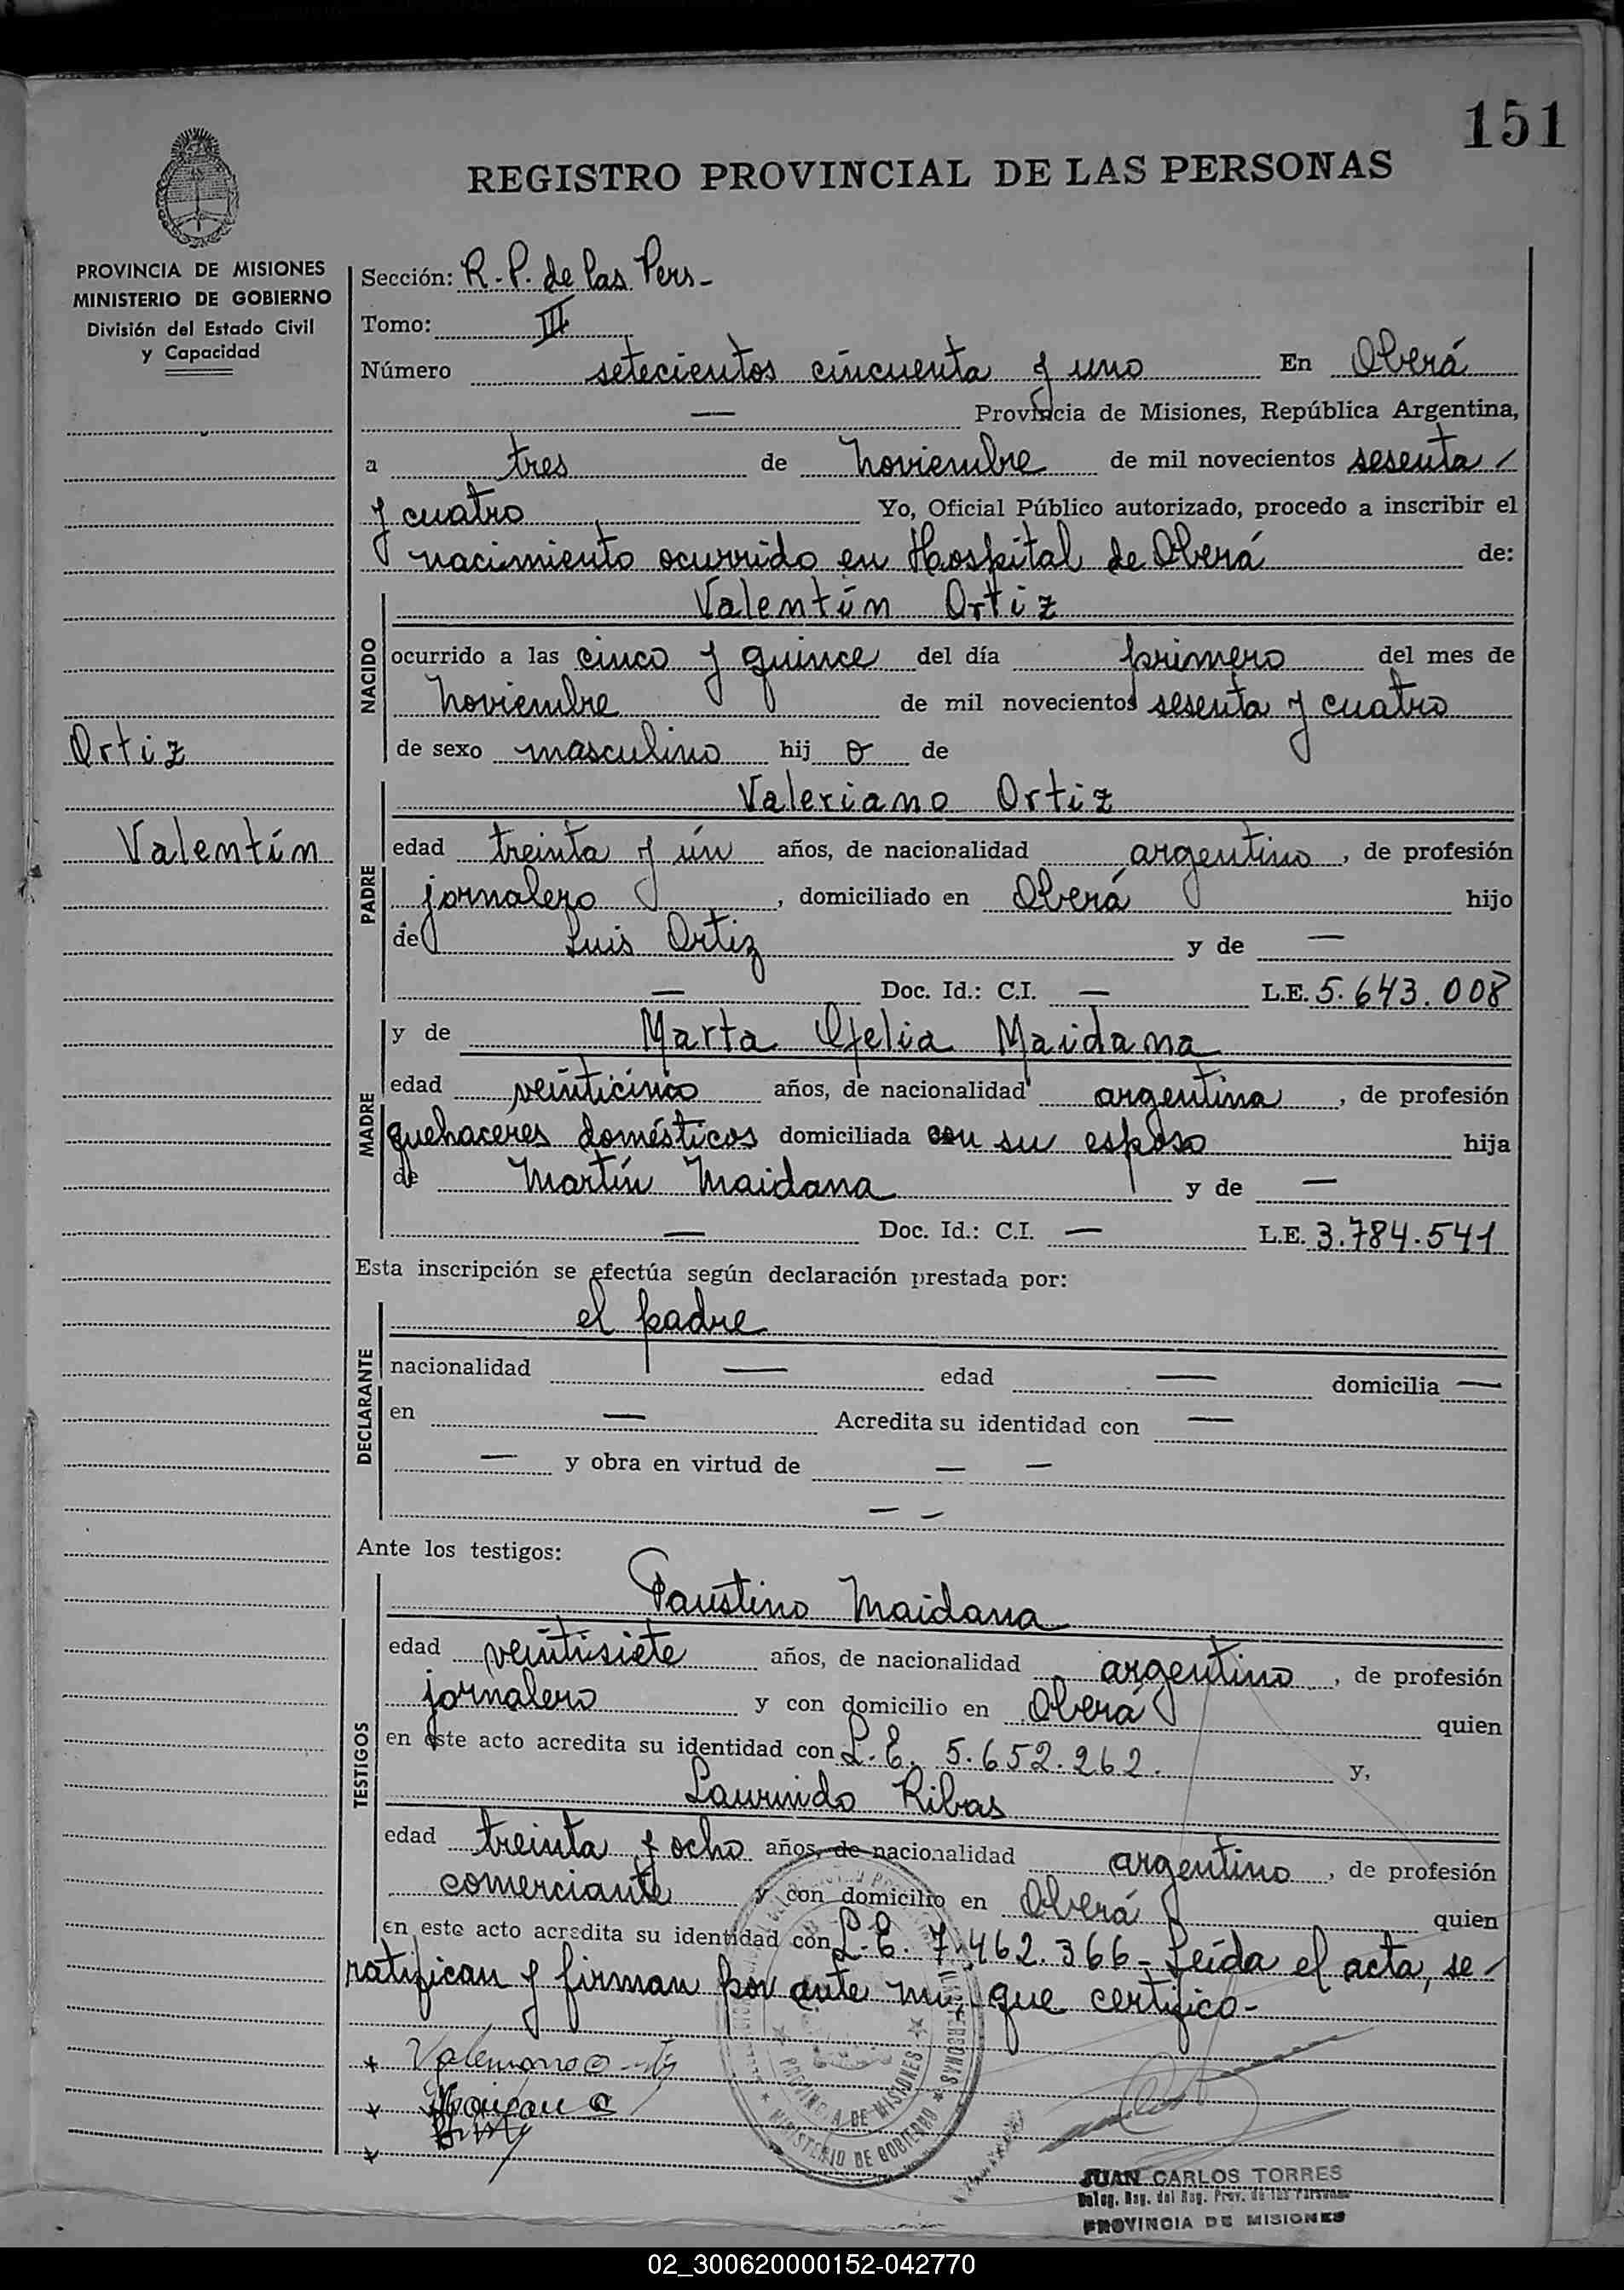 151
REGISTRO PROVINCIAL DE LAS PERSONAS
PROVINCIA DE MISIONES
MINISTERIO DE GOBIERNO
División del Estado Civil
y Capacidad
Ortiz
Valentín
Sección: R.P. de las Pers-
Tomo: III
Número setecientos cincuenta y uno En Oberá
— Provincia de Misiones, República Argentina,
a tres de noviembre de mil novecientos sesenta /
y cuatro Yo, Oficial Público autorizado, procedo a inscribir el
nacimiento ocurrido en Hospital de Oberá de:
NACIDO
Valentín Ortiz
ocurrido a las cinco y quince del día primero del mes de
noviembre de mil novecientos sesenta y cuatro
de sexo masculino hij o de
PADRE
Valeriano Ortiz
edad treinta y ún años, de nacionalidad argentino, de profesión
jornalero, domiciliado en Oberá hijo
de Luis Ortiz y de —
— Doc. Id.: C.I. — L.E. 5.643.008
MADRE
y de Marta Ofelia Maidana
edad veinticinco años, de nacionalidad argentina, de profesión
quehaceres domésticos domiciliada con su esposo hija
de Martín Maidana y de —
— Doc. Id.: C.I. — L.E. 3.784.541
Esta inscripción se efectúa según declaración prestada por:
DECLARANTE
el padre
nacionalidad — edad — domicilia —
en — Acredita su identidad con —
— y obra en virtud de — —
— —
Ante los testigos:
TESTIGOS
Faustino Maidana
edad veintisiete años, de nacionalidad argentino, de profesión
jornalero y con domicilio en Oberá quien
en este acto acredita su identidad con L.E. 5.652.262. y,
Laurindo Ribas
edad treinta y ocho años, de nacionalidad argentino, de profesión
comerciante y con domicilio en Oberá quien
en este acto acredita su identidad con L.E. 7.462.366- Leída el acta, se /
ratifican y firman por ante mí, que certifico-
PROVINCIA DE MISIONES
MINISTERIO DE GOBIERNO
JUAN CARLOS TORRES
Deleg. Reg. del Reg. Prov. de las Personas
PROVINCIA DE MISIONES
02_300620000152-042770